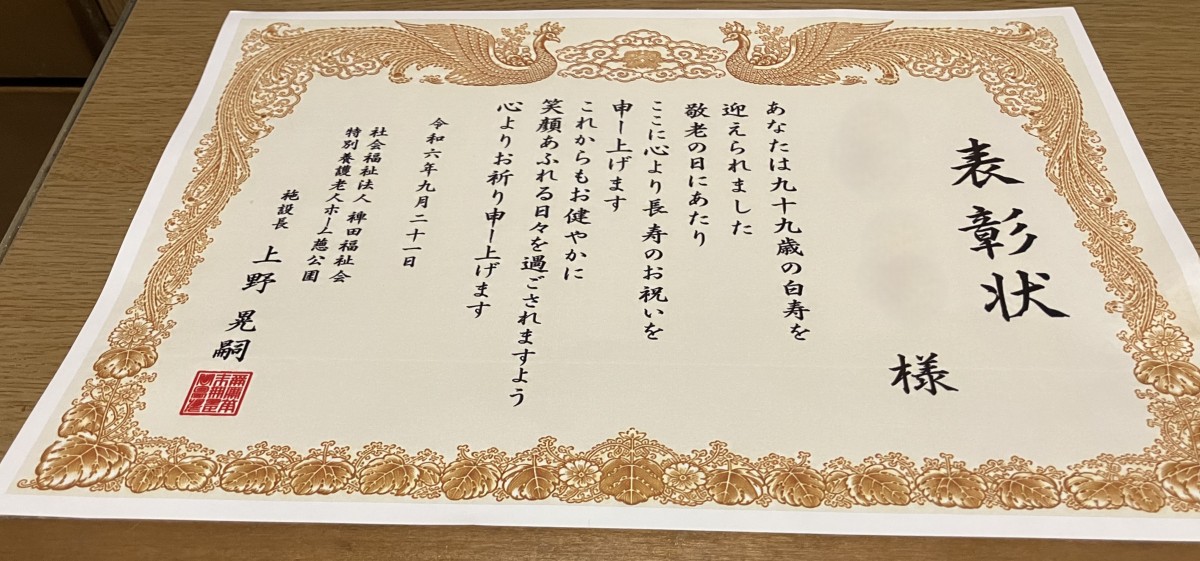 表彰状
様
あなたは九十九歳の白寿を
迎えられました
敬老の日にあたり
ここに心より長寿のお祝いを
申し上げます
これからもお健やかに
笑顔あふれる日々を過ごされますよう
心よりお祈り申し上げます
令和六年九月二十一日
社会福祉法人 稗田福祉会
特別養護老人ホーム 慈公園
施設長 上野 晃嗣